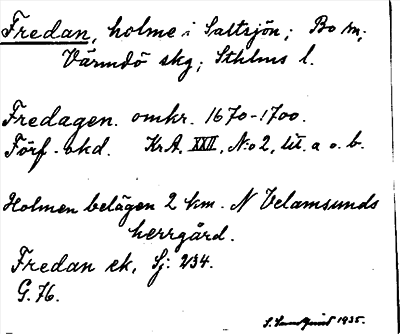 Fredan, holme i Saltsjön; Bo sn;
Värmdö skg; Sthlms l.
Fredagen. omkr. 1670-1700.
Förf. okd. KrA. XXII, N:o 2, lit. a o. b.
Holmen belägen 2 km. N Velamsunds
herrgård.
Fredan ek, Sj: 234.
G. 76.
S. Sundquist 1935.